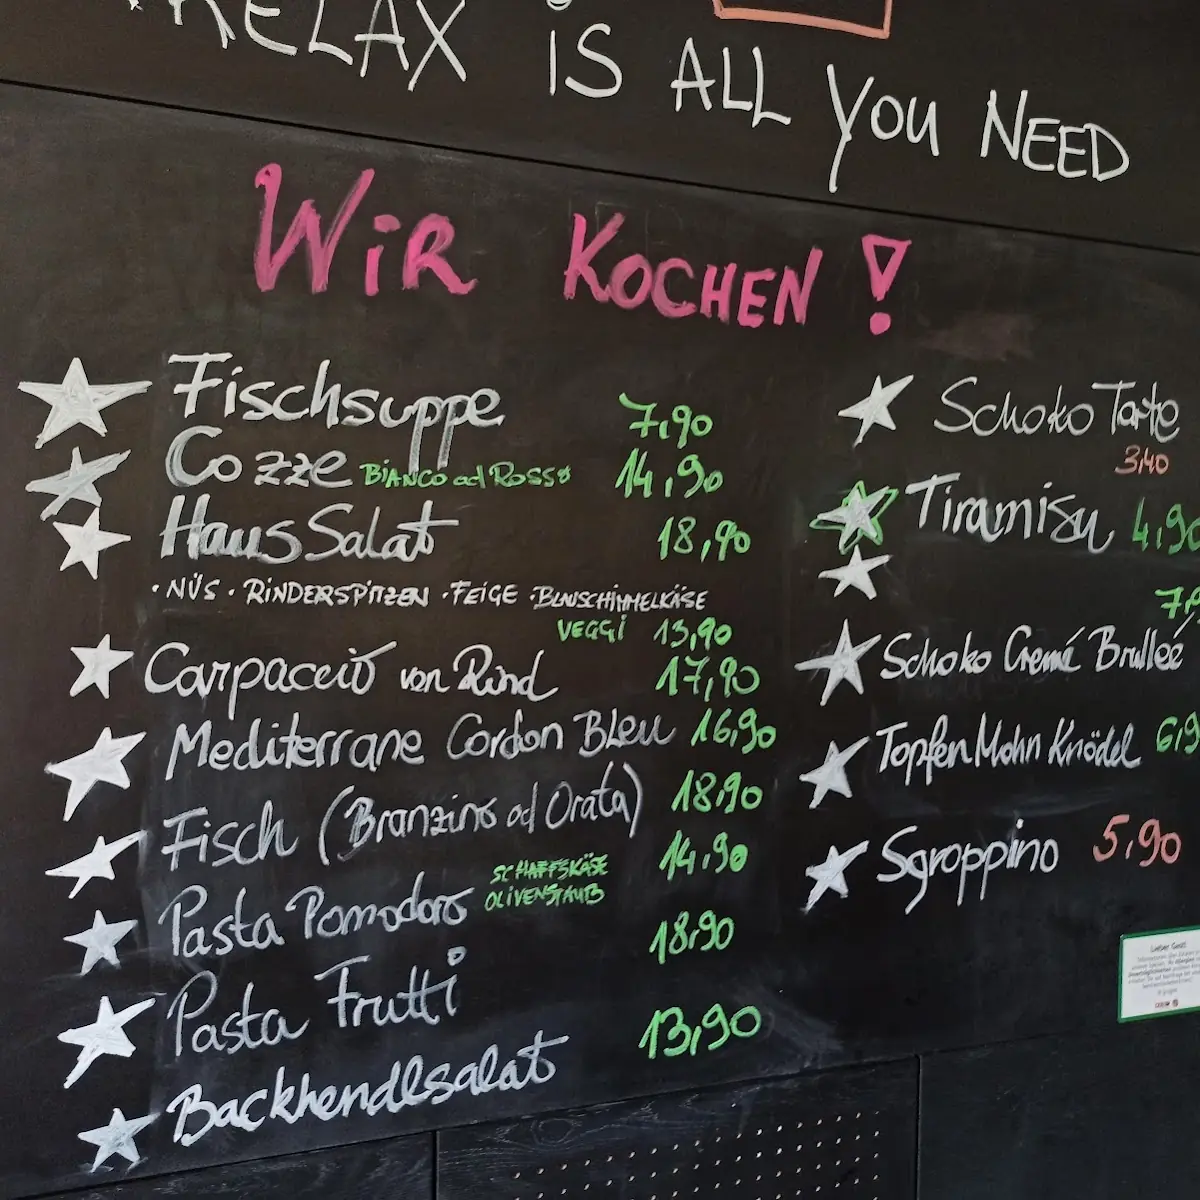 RELAX IS ALL YOU NEED
WiR KOCHEN!
Fischsuppe 7,90
Cozze BiANCO od ROSSO 14,90
Haus Salat 18,90
· NÜS · RINDERSPITZEN · FEIGE · BLAUSCHIMMELKÄSE
VEGGI 13,90
Carpaccio von Rind 17,90
Mediterrane Cordon Bleu 16,90
Fisch (Branzino od Orata) 18,90
SCHAFFSKÄSE
OLIVENSTAUB
Pasta Pomodoro 14,90
Pasta Frutti 18,90
Backhendlsalat 13,90
Schoko Tarte
3,40
Tiramisu 4,90
Schoko Cremé Brulleé
Topfen Mohn Knödel
Sgroppino 5,90
Lieber Gast!